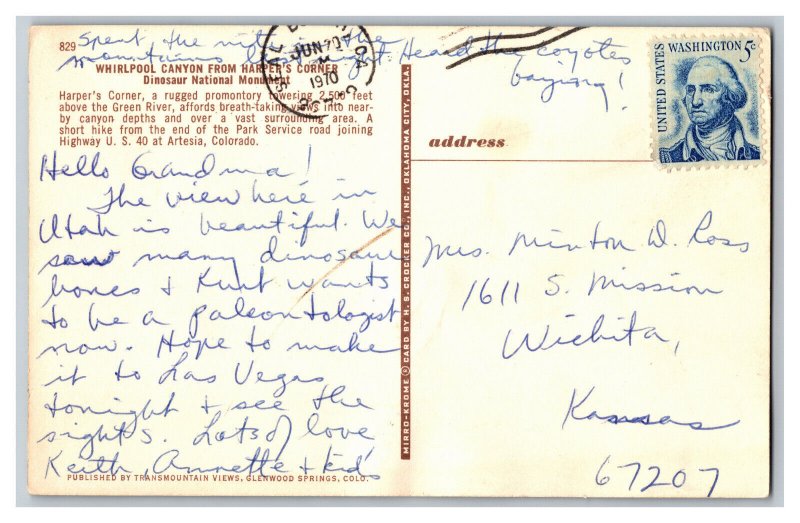 829
Spent the night in the
mountains last night. Heard the coyotes
baying!
WHIRLPOOL CANYON FROM HARPER'S CORNER
Dinosaur National Monument
Harper's Corner, a rugged promontory towering 2,500 feet
above the Green River, affords breath-taking views into near-
by canyon depths and over a vast surrounding area. A
short hike from the end of the Park Service road joining
Highway U. S. 40 at Artesia, Colorado.
Hello Grandma!
The view here in
Utah is beautiful. We
saw many dinosaur
bones & Kurt wants
to be a paleontologist
now. Hope to make
it to Las Vegas
tonight & see the
sights. Lots of love
Keith, Annette & kids
PUBLISHED BY TRANSMOUNTAIN VIEWS, GLENWOOD SPRINGS, COLO.
MIRRO-KROME ® CARD BY H. S. CROCKER CO., INC., OKLAHOMA CITY, OKLA.
JUN 20
1970
UNITED STATES
WASHINGTON 5c
address
Mrs. Minton D. Ross
1611 S. Mission
Wichita,
Kansas
67207